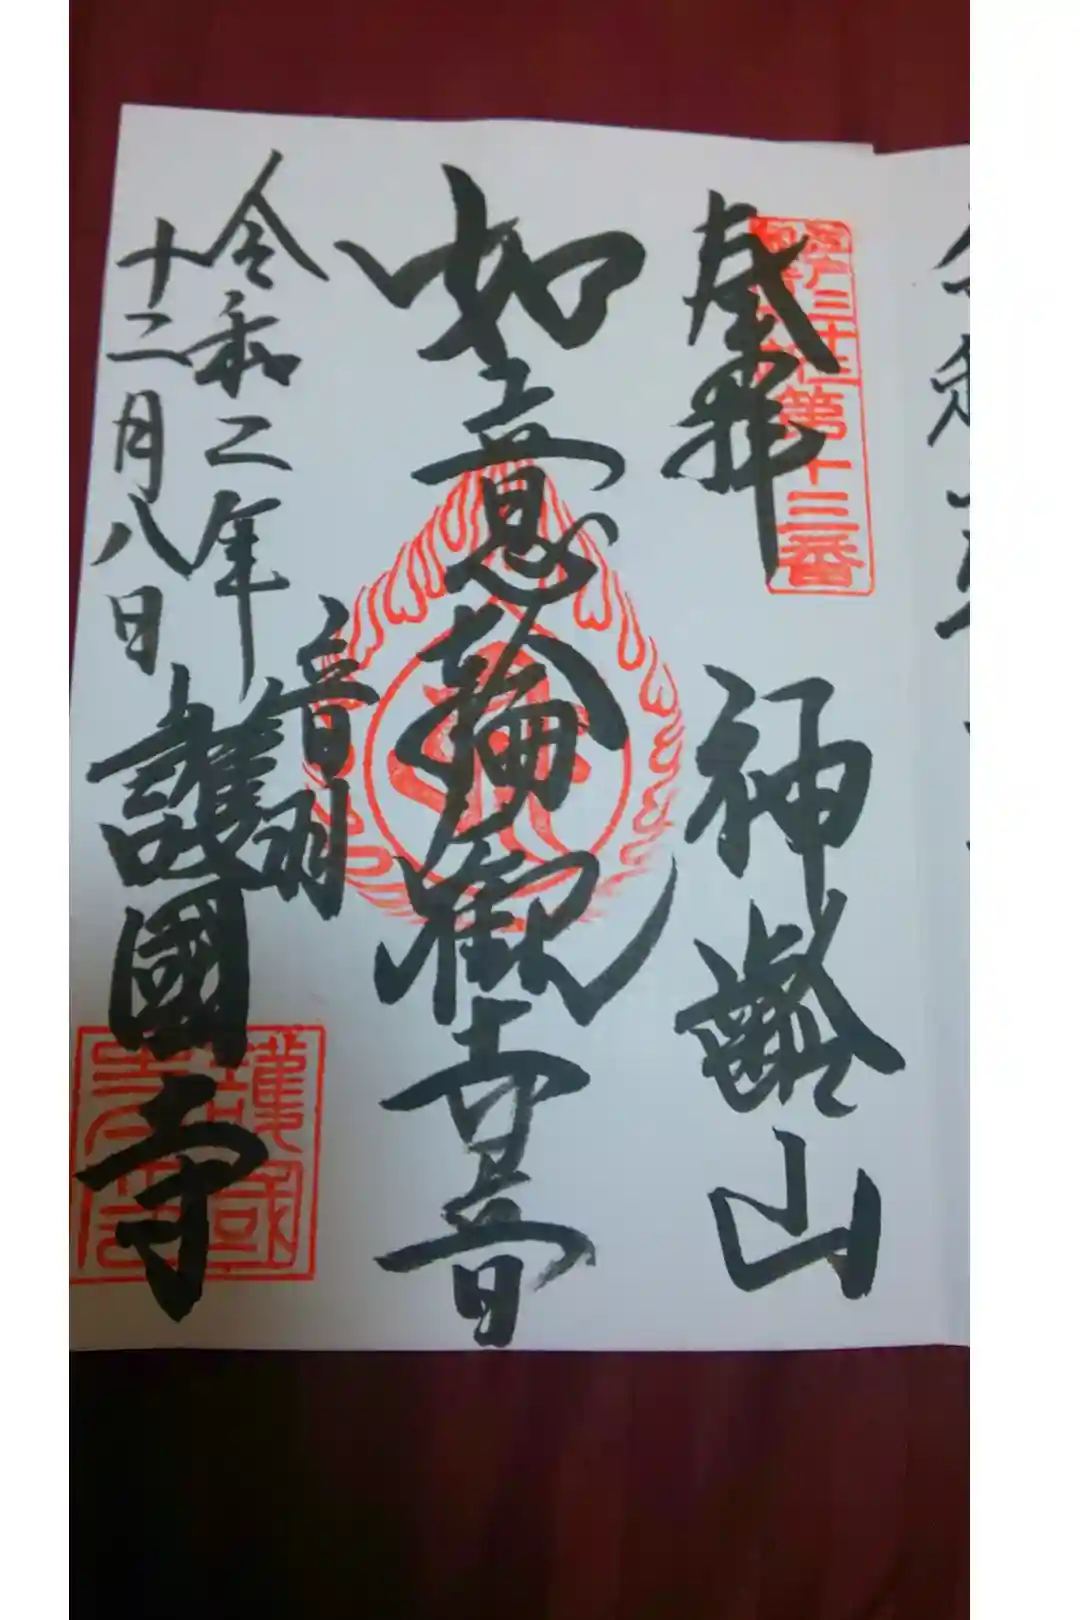 奉拝
江戸三十三
第十三番
神齢山
如意輪観世音
令和二年
十二月八日
音羽
護國寺